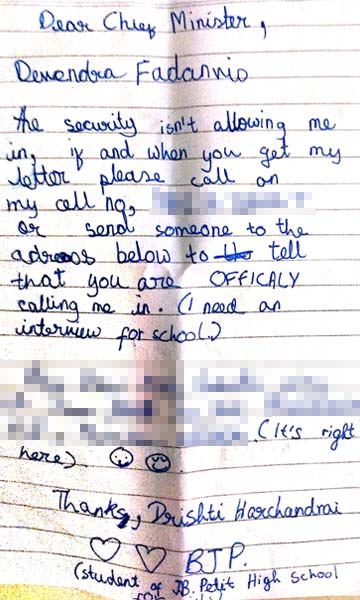 Dear Chief Minister,
Devendra Fadanvis
the security isn't allowing me
in, if and when you get my
letter please call on
my cell no,
or send someone to the
adress below to tell
that you are OFFICALY
calling me in. (I need an
interview for school.)
(It's right
here)
Thanks, Drishti Harchandrai
BJP.
(student of JB. Petit High School